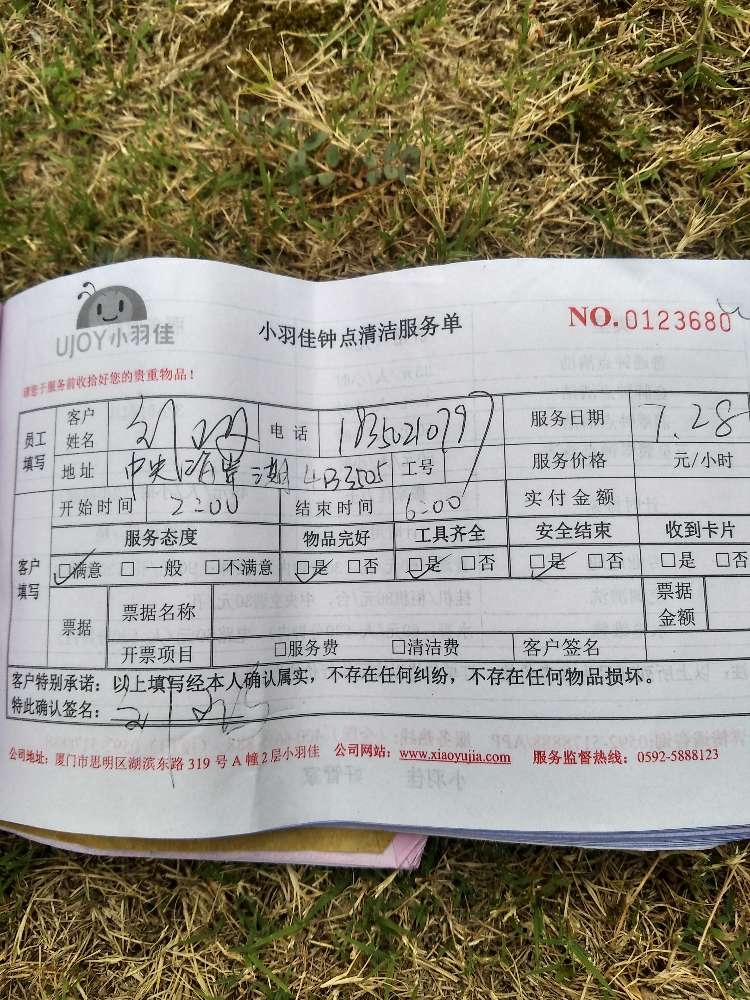 UJOY小羽佳
小羽佳钟点清洁服务单
NO.0123680
请您于服务前收拾好您的贵重物品！
员工填写 客户姓名 刘 电话 服务日期 7.28
地址 中央 期 4B3505 工号 服务价格 元/小时
开始时间 2:00 结束时间 6:00 实付金额
客户填写 服务态度 物品完好 工具齐全 安全结束 收到卡片
☑满意 □ 一般 □不满意 ☑是 □否 ☑是 □否 ☑是 □否 □是 □否
票据 票据名称 票据金额
开票项目 □服务费 □清洁费 客户签名
客户特别承诺：以上填写经本人确认属实，不存在任何纠纷，不存在任何物品损坏。
特此确认签名：刘
公司地址：厦门市思明区湖滨东路 319 号 A 幢 2 层小羽佳 公司网站：www.xiaoyujia.com 服务监督热线：0592-5888123